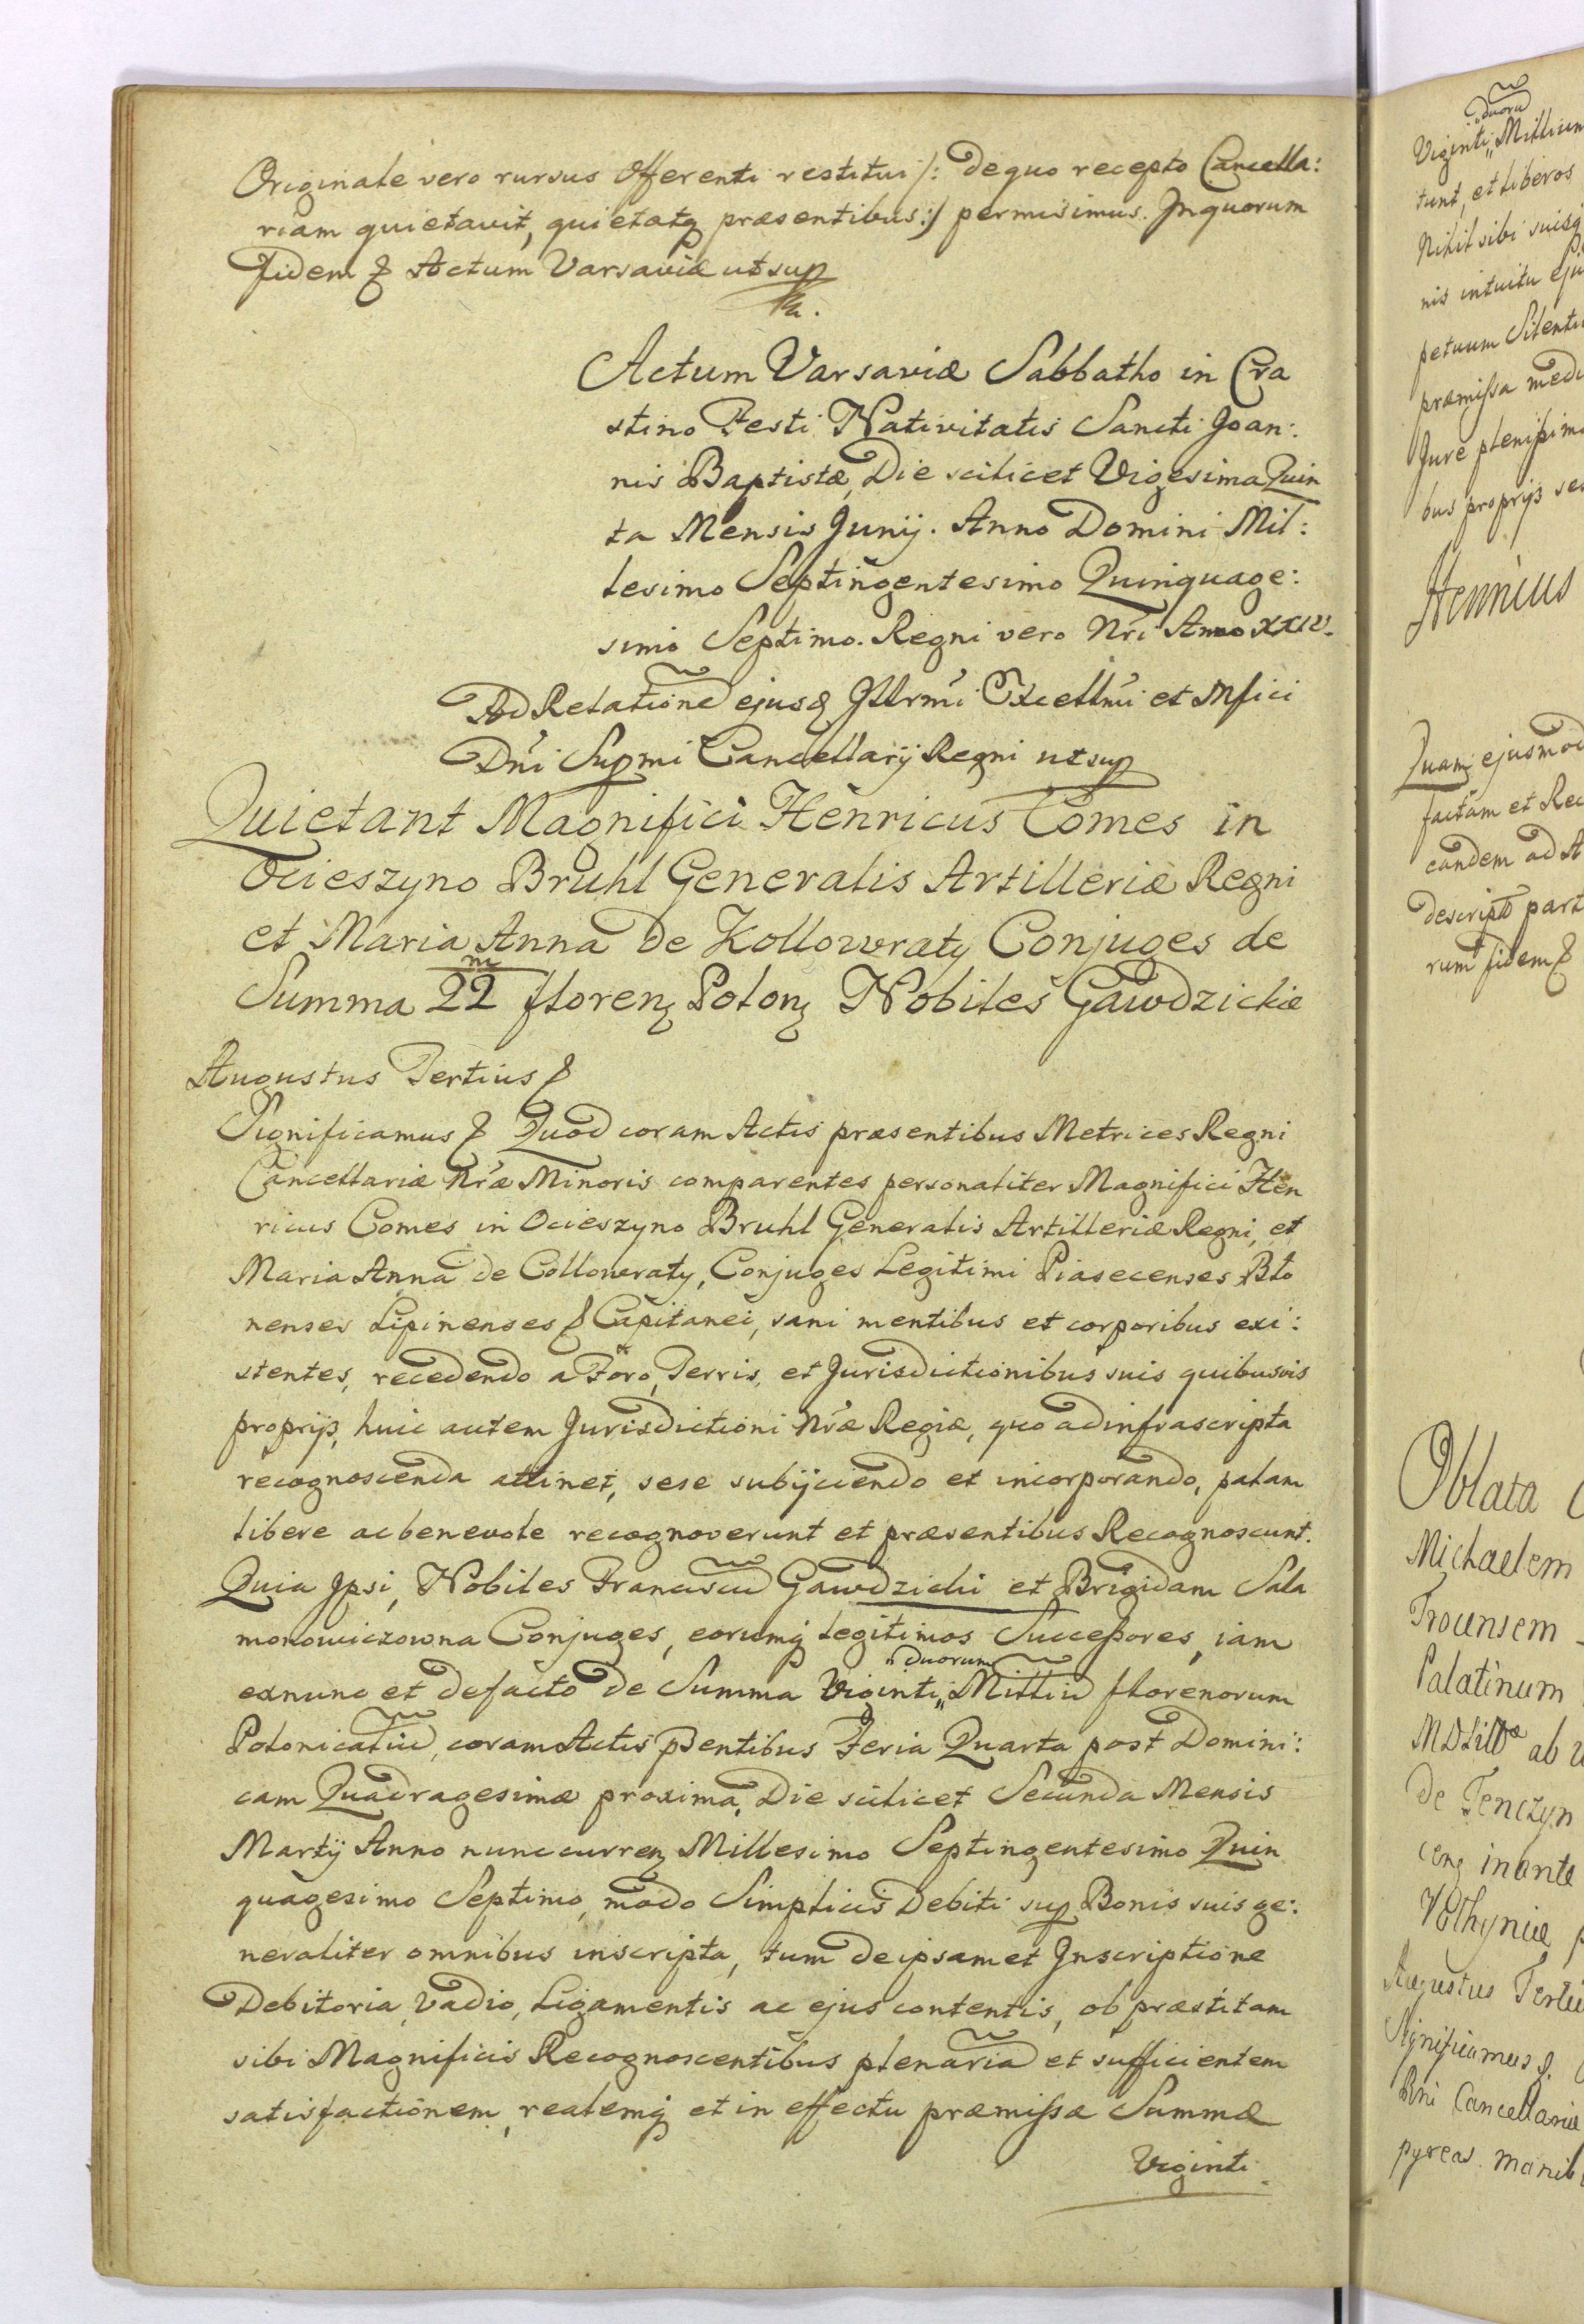 Originale vero rursus Offerenti restitui /: de quo recepto Cancella:
riam quietavit, quietatq praesentibus :/ permisimus. In quorum
Fidem & Actum Varsaviæ ut sup
Actum Varsaviæ Sabbatho in Cra
stino Festi Nativitatis Sancti Joan:
nis Baptistæ, Die scilicet Vigesima Quin
ta Mensis Junij. Anno Domini Mil:
lesimo Septingentesimo Quinquage:
simo Septimo. Regni vero Nri Anno XXIV.
Ad Relatione ejusd Illrmi Excellmi et Mfici
Dni Supmi Cancellarij Regni ut sup
Quietant Magnifici Henricus Comes in
Ocieszyno Bruhl Generalis Artilleriæ Regni
et Maria Anna de Kollowraty Conjuges de
Summa 22 m floren Polon Nobiles Gawdzickie
Augustus Tertius &
Significamus & Quod coram Actis præsentibus Metrices Regni
Cancellariæ Nræ Minoris comparentes personaliter Magnifici Hen
ricus Comes in Ocieszyno Bruhl Generalis Artilleriæ Regni, et
Maria Anna de Collowraty, Conjuges Legitimi Piasecenses Blo
nenses Lipinenses & Capitanei, sani mentibus et corporibus exi:
stentes, recedendo a Foro, Terris, et Jurisdictionibus suis quibusvis
proprijs, huic autem Jurisdictioni Nræ Regiæ, quo ad infrascripta
recognoscenda attinet, sese subijciendo et incorporando, palam
libere ac benevole recognoverunt et præsentibus Recognoscunt.
Quia Ipsi, Nobiles Franciscu Gawdzicki et Brigidam Sala
monowiczowna Conjuges, eorumq legitimos Successores, iam
exnunc et defacto de Summa Viginti „duorum„ Milliu florenorum
Polonicaliu, coram Actis psentibus Feria Quarta post Domini:
cam Quadragesimæ proxima, Die scilicet Secunda Mensis
Martij Anno nunc curren Millesimo Septingentesimo Quin
quagesimo Septimo, modo Simplicis Debiti sup Bonis suis ge:
neraliter omnibus inscripta, tum de ipsamet Inscriptione
Debitoria, Vadio, Ligamentis ac ejus contentis, ob præstitam
sibi Magnificis Recognoscentibus plenaria et sufficientem
satisfactionem, realemq et in effectu præmissæ Summæ
Viginti
Viginti „duoru„ Millium
tunt, et liberos
Nihil sibi suisq
nis intuitu eju
petuum Silenti
præmissa medi
Jure plenissimo
bus proprijs se
Henricus
Quam ejusmod
factam et Rec
eandem ad A
descripto part
rum fidem &
Oblata
Michaelem
Trocensem
Palatinum
MDLittæ ab
de Tenczyn
cen inante
Volhyniæ p
Augustus Terti
Significamus &.
Rni Cancellariæ
pyreas. manib